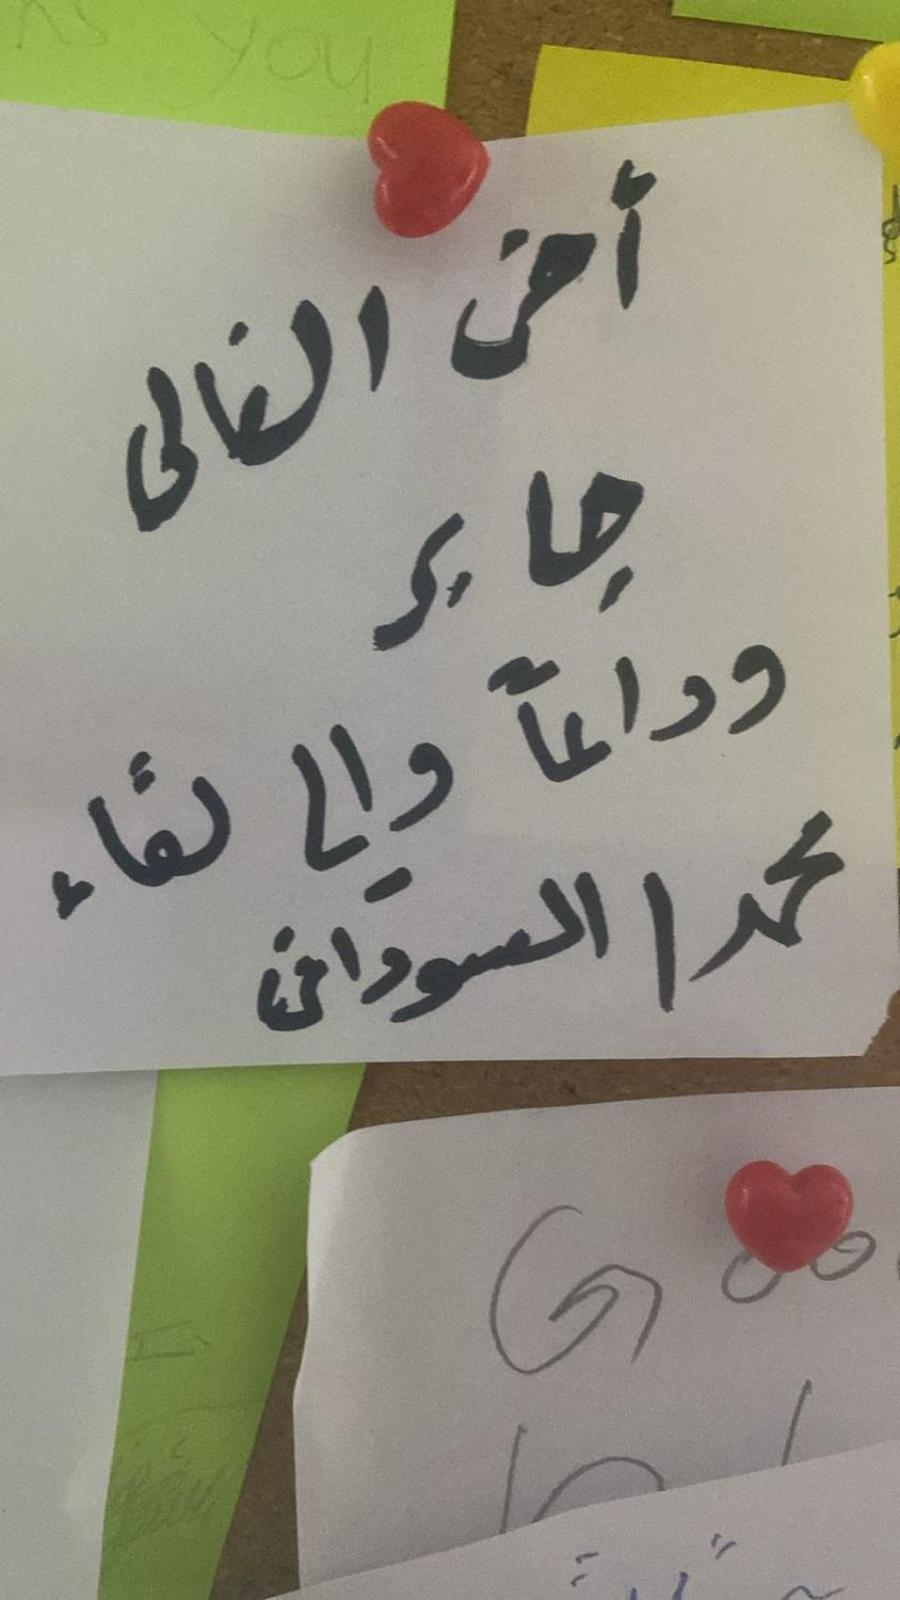 you
أخى الغالى
جابر
وداعاً والى لقاء
محمد السودانى
Goo